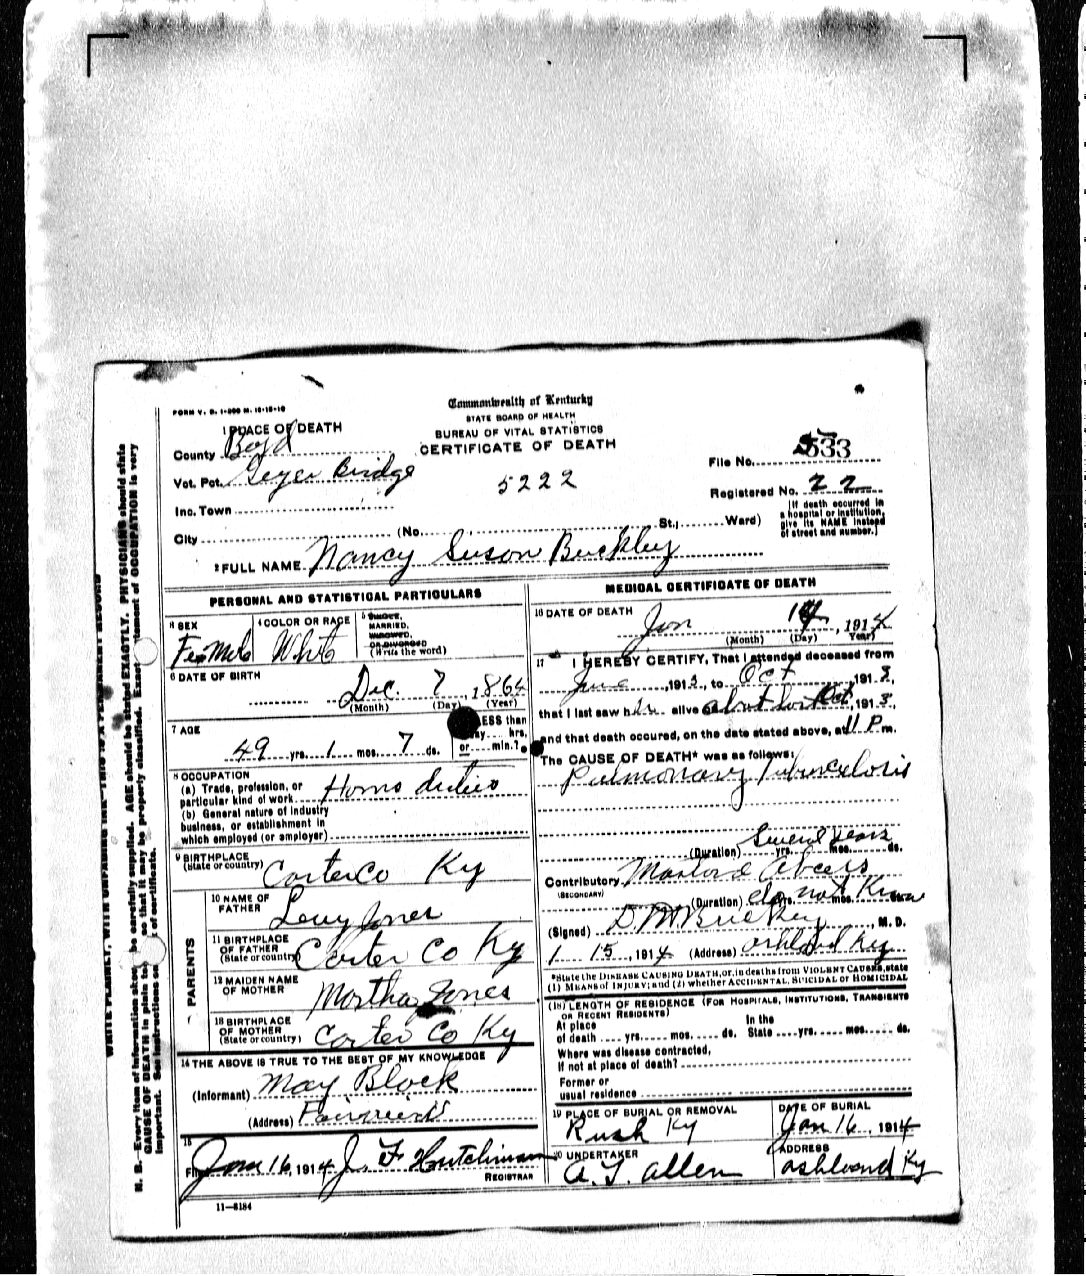 FORM V. S. 1-200 M. 12-15-10
Commonwealth of Kentucky
STATE BOARD OF HEALTH
BUREAU OF VITAL STATISTICS
CERTIFICATE OF DEATH
1 PLACE OF DEATH
County Boyd
Vot. Pct. Geyer Bridge
5222
File No. 533
Registered No. 22
Inc. Town
City (No. St.; Ward)
[If death occurred in a hospital or institution, give its NAME instead of street and number.]
2 FULL NAME Nancy Suson Buckley
PERSONAL AND STATISTICAL PARTICULARS
3 SEX
4 COLOR OR RACE
5 SINGLE, MARRIED, WIDOWED, OR DIVORCED (Write the word)
FeMale White
6 DATE OF BIRTH
Dec. 7, 1864
(Month) (Day) (Year)
7 AGE
49 yrs. 1 mos. 7 ds.
LESS than day hrs. or min.?
8 OCCUPATION
(a) Trade, profession, or
particular kind of work Home duties
(b) General nature of industry
business, or establishment in
which employed (or employer)
9 BIRTHPLACE
(State or country) Carter Co Ky
PARENTS
10 NAME OF FATHER Levy Jones
11 BIRTHPLACE OF FATHER (State or country) Carter Co Ky
12 MAIDEN NAME OF MOTHER Martha Jones
13 BIRTHPLACE OF MOTHER (State or country) Carter Co Ky
14 THE ABOVE IS TRUE TO THE BEST OF MY KNOWLEDGE
(Informant) May Block
(Address)
15
Jan 16, 1914 J. F. Hutchinson
REGISTRAR
11-8184
MEDICAL CERTIFICATE OF DEATH
16 DATE OF DEATH
Jan 14, 1914
(Month) (Day) (Year)
17 I HEREBY CERTIFY, That I attended deceased from
June, 1913, to Oct, 1913,
that I last saw her alive about last Oct, 1913,
and that death occured, on the date stated above, at 11 P m.
The CAUSE OF DEATH* was as follows:
Pulmonary Tuberculosis
(Duration) Several years yrs. mos. ds.
Contributory Mastoid Abcess
(SECONDARY)
(Duration) do not Know
(Signed) D. M. Buckley, M. D.
1 15, 1914 (Address) Ashland Ky
*State the DISEASE CAUSING DEATH, or, in deaths from VIOLENT CAUSES, state
(1) MEANS of INJURY; and (2) whether ACCIDENTAL, SUICIDAL or HOMICIDAL
(18) LENGTH OF RESIDENCE (FOR HOSPITALS, INSTITUTIONS, TRANSIENTS
OR RECENT RESIDENTS)
At place of death yrs. mos. ds. In the State yrs. mos. ds.
Where was disease contracted,
if not at place of death?
Former or
usual residence
19 PLACE OF BURIAL OR REMOVAL
Rush Ky
DATE OF BURIAL
Jan 16, 1914
20 UNDERTAKER
A. F. Allen
ADDRESS
Ashland Ky